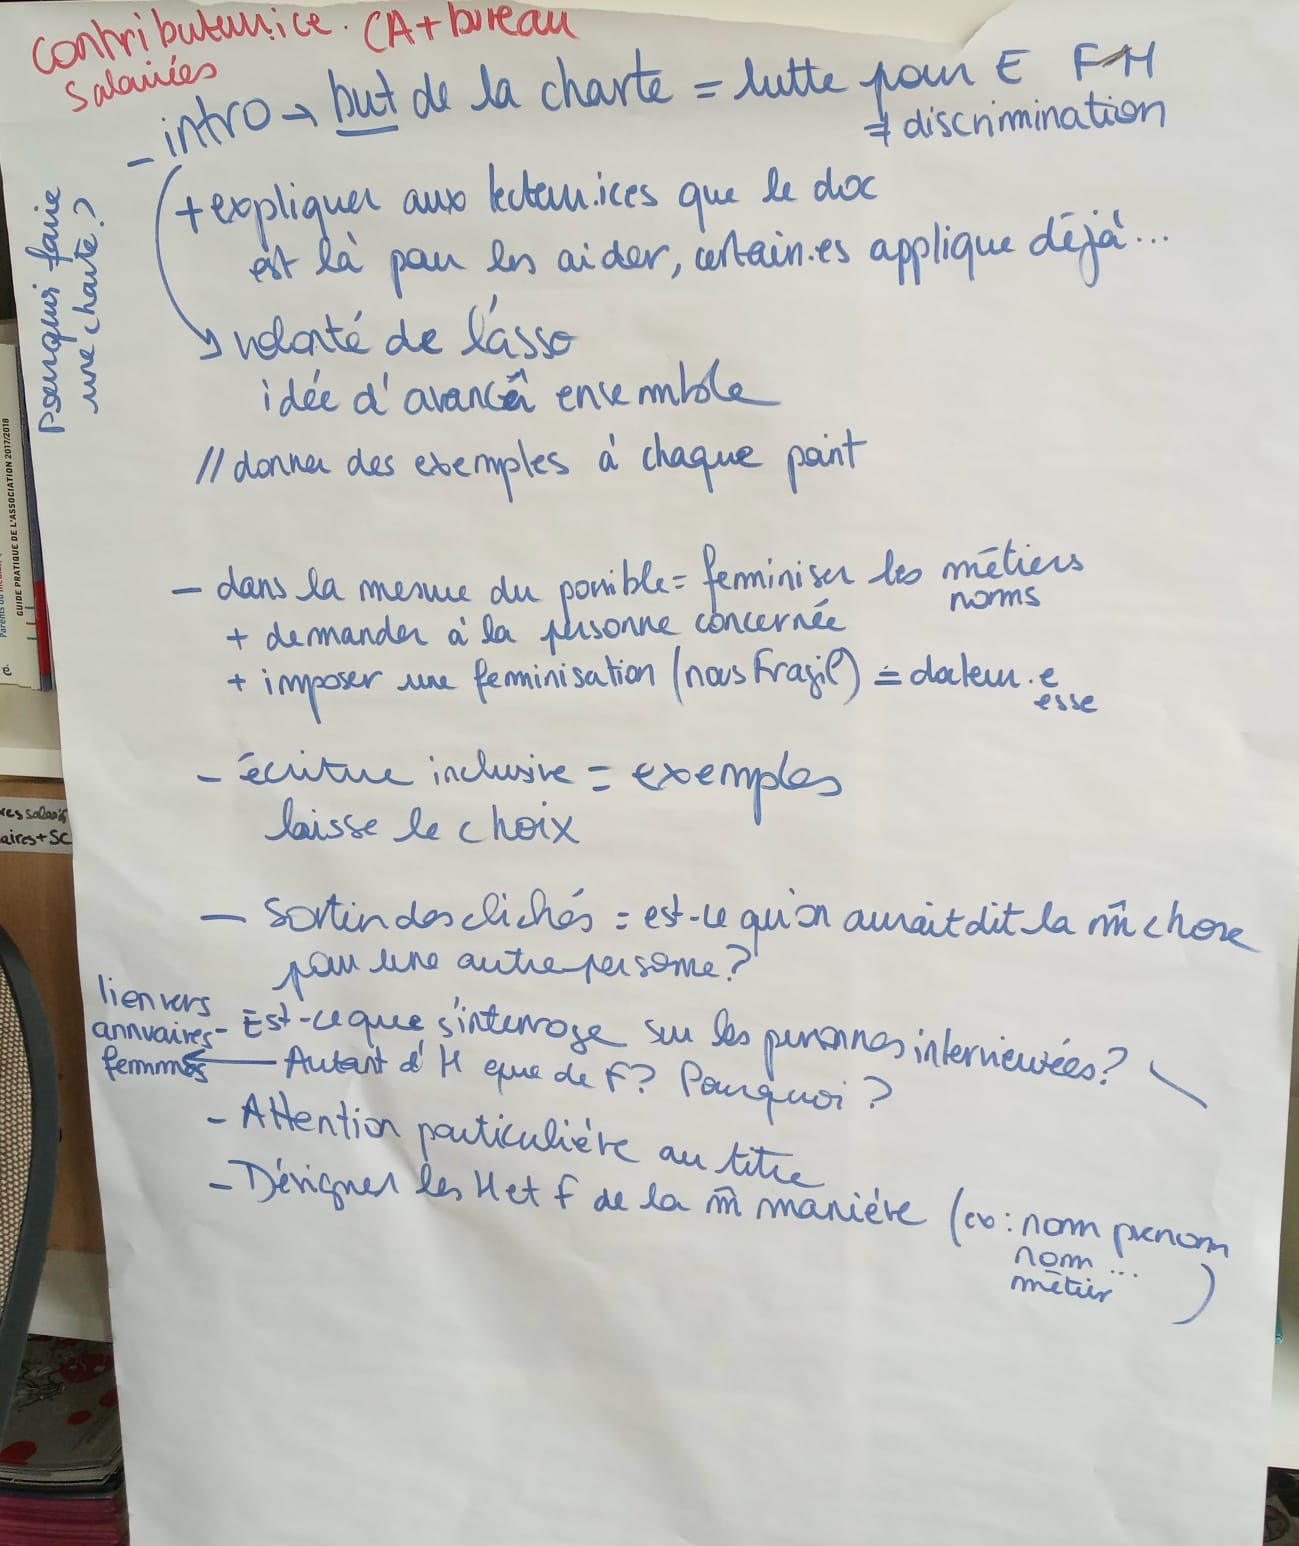 contributeur.ice. CA + bureau
salariées
- intro → but de la charte = lutte pour E F-H
≠ discrimination
Pourquoi faire
une charte?
+ expliquer aux lecteur.ices que le doc
est là pour les aider, certain.es applique déjà...
→ volonté de l'asso
idée d'avancer ensemble
// donner des exemples à chaque point
- dans la mesure du possible = feminiser les métiers
noms
+ demander à la personne concernée
+ imposer une feminisation (nous Fragil) = docteur.e
esse
- écriture inclusive = exemples
laisse le choix
- Sortir des clichés = est-ce qu'on aurait dit la m̄ chose
pour une autre personne?
lien vers
annuaires
femmes
- Est-ce que s'interroge sur les personnes interviewées?
Autant d'H que de F? Pourquoi?
- Attention particulière au titre
- Désigner les H et F de la m̄ manière (ex: nom prenom
nom ...
métier )
GUIDE PRATIQUE DE L'ASSOCIATION 2017/2018
aires+SC